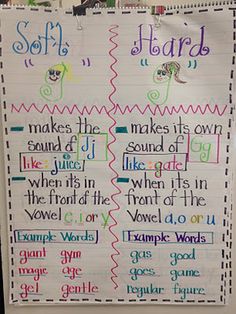 Soft
"g"
- makes the
sound of Jj
like: juice
- when it's in
the front of the
vowel e, i, or y
Example Words
giant gym
magic age
gel gentle
Hard
"g"
- makes its own
sound of Gg
like: gate
- when it's in
front of the
vowel a, o, or u
Example Words
gas good
goes game
regular figure